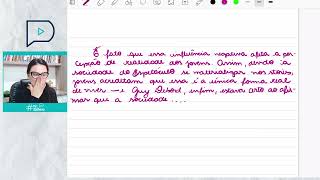 É fato que essa influência negativa afeta a per-
cepção de realidade dos jovens. Assim, sendo a
sociedade do Espetáculo se materializar nos stories,
jovens acreditam que essa é a única forma real
de viver — e Guy Debord, enfim, estava certo ao afir-
mar que a sociedade ....